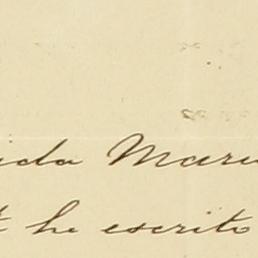 ida Maru
t he escrito